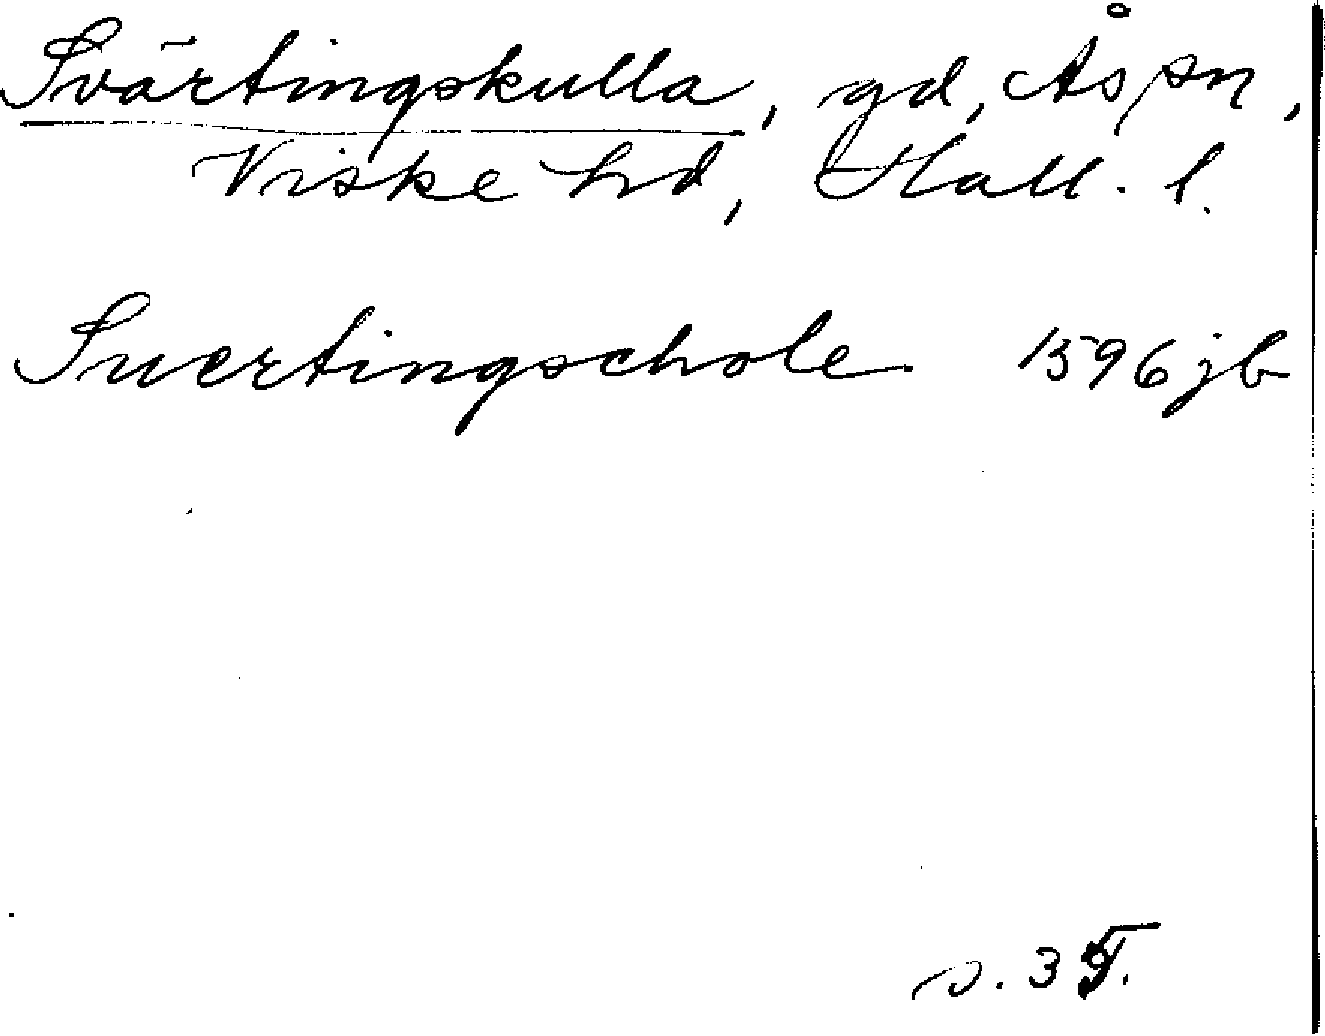 Svärtingskulla, gd, Ås sn,
Viske hd, Hall. l.
Suertingschole 1596 jb
s. 35.